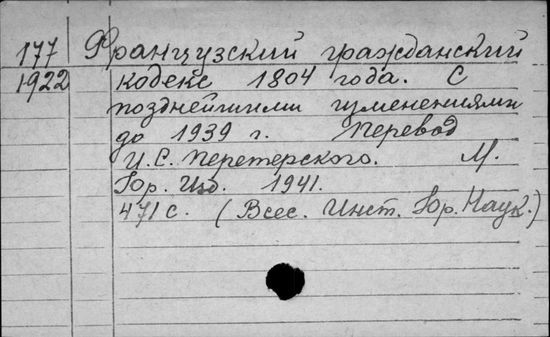 177 Французский гражданский
1922 кодекс 1804 года. С
позднейшими изменениями
до 1939 г. Перевод
И.С. Перетерского. М.
Юр. Изд. 1941.
471 с. (Всес. Инст. Юр. Наук.)